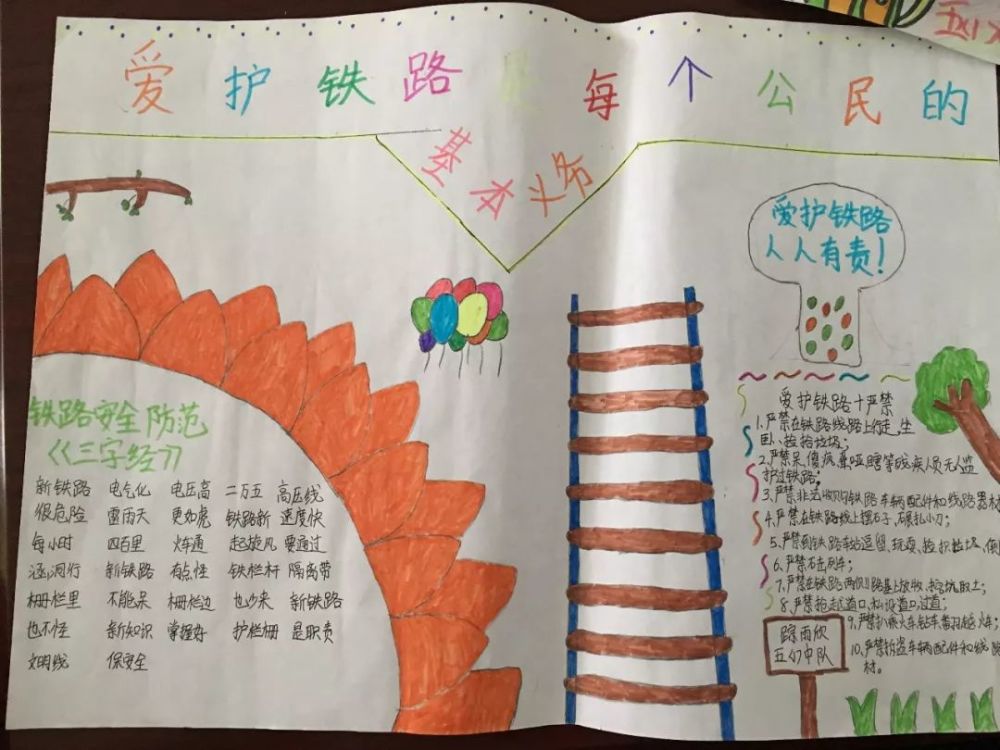 爱护铁路是每个公民的
基本义务
爱护铁路
人人有责!
铁路安全防范
《三字经》
新铁路 电气化 电压高 二万五 高压线
很危险 雷雨天 更如虎 铁路新 速度快
每小时 四百里 火车通 起旋风 要通过
涵洞行 新铁路 有点怪 铁栏杆 隔离带
栅栏里 不能呆 栅栏边 也少来 新铁路
也不怪 新知识 掌握好 护栏栅 是职责
文明线 保安全
爱护铁路十严禁
1.严禁在铁路线路上行走,坐
卧、捡拾垃圾;
2.严禁呆、傻、病、聋、哑、瞎等残疾人员无人监
护过铁路;
3.严禁非法收购铁路车辆配件和线路器材
4.严禁在铁路线上摆石子,碾轧小刀;
5.严禁到铁路车站逗留、玩耍、捡拾垃圾、
6.严禁石击列车;
7.严禁在铁路两侧路基上放牧、挖坑取土;
8.严禁抢越道口、私设道口过道;
9.严禁扒乘火车钻车
10.严禁偷盗车辆配件和线路
材。
雨欣
五(1)中队
五(1)